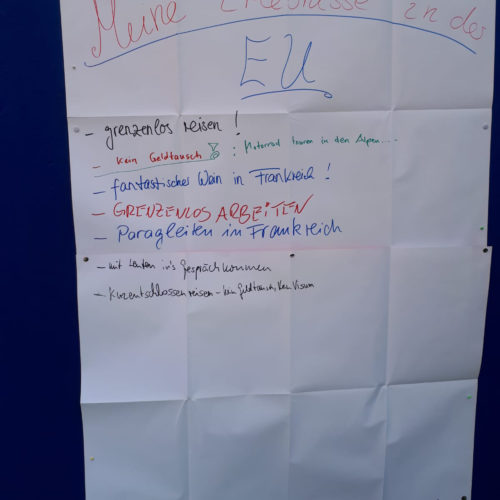 Meine Erlebnisse in der
EU
- grenzenlos reisen!
- Kein Geldtausch! : Motorrad touren in den Alpen....
- fantastischer Wein in Frankreich!
- GRENZENLOS ARBEITEN
- Paragleiten in Frankreich
- mit Leuten in's Gespräch kommen
- Kurzentschlossen reisen - kein Geldtausch, kein Visum